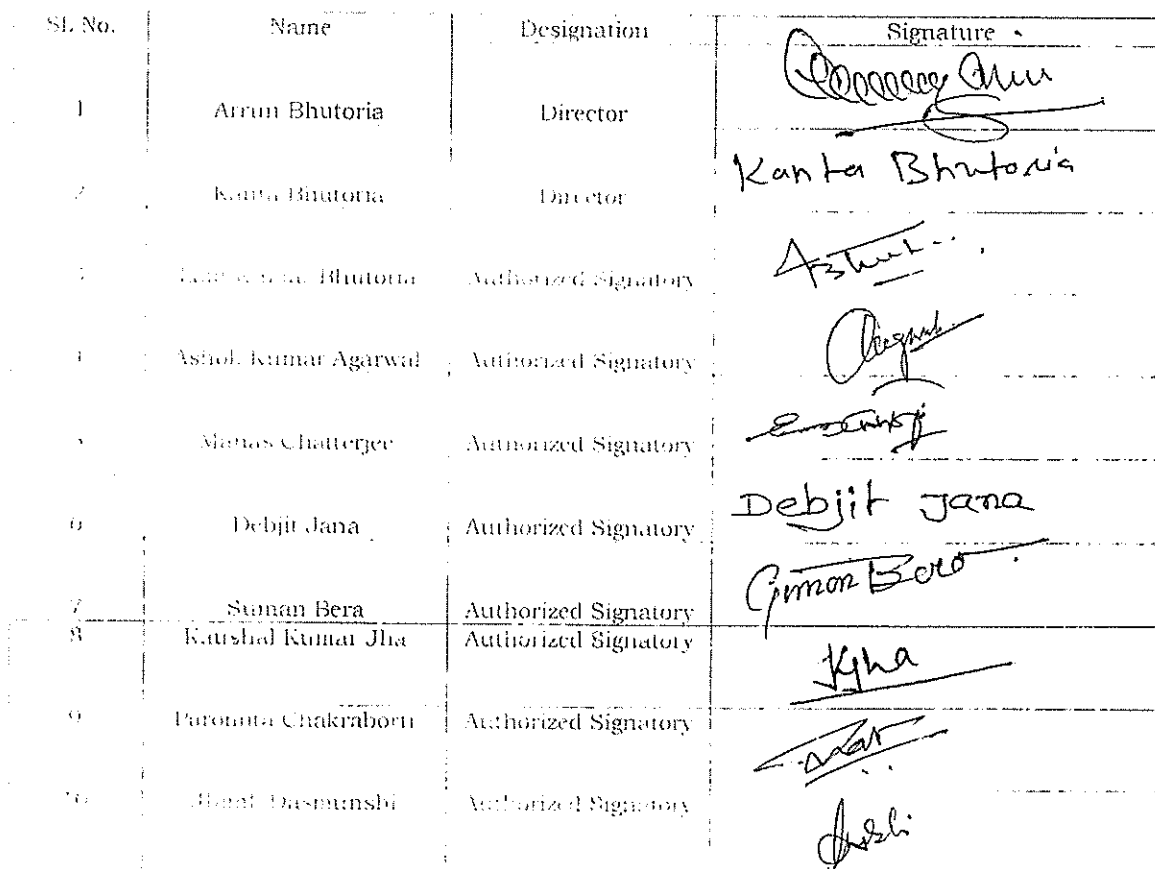 Sl. No. Name Designation Signature
1 Arrun Bhutoria Director
2 Kanta Bhutoria Director Kanta Bhutoria
3 Bhutoria Authorized Signatory
4 Ashok Kumar Agarwal Authorized Signatory
5 Manas Chatterjee Authorized Signatory
6 Debjit Jana Authorized Signatory Debjit Jana
7 Suman Bera Authorized Signatory Suman Bera
8 Kaushal Kumar Jha Authorized Signatory KJha
9 Paromita Chakraborti Authorized Signatory
10 Dasmunshi Authorized Signatory